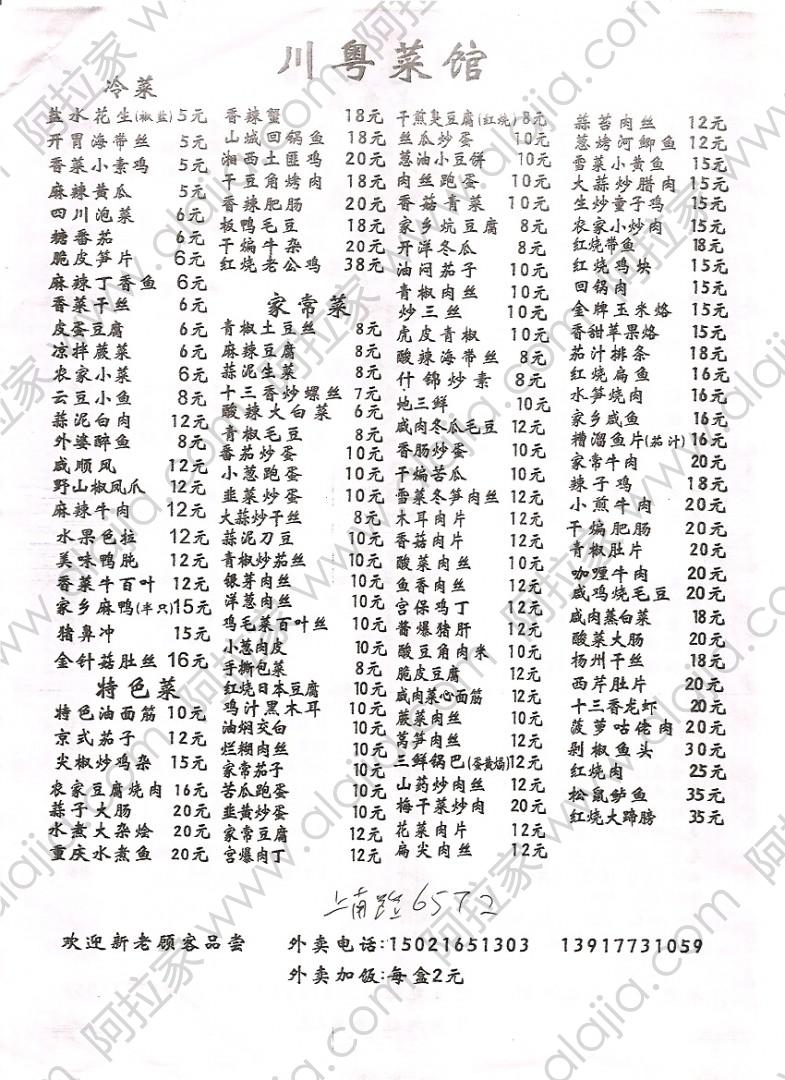 川粤菜馆
冷菜
盐水花生(椒盐) 5元
开胃海带丝 5元
香菜小素鸡 5元
麻辣黄瓜 5元
四川泡菜 6元
糖番茄 6元
脆皮笋片 6元
麻辣丁香鱼 6元
香菜干丝 6元
皮蛋豆腐 6元
凉拌蕨菜 6元
农家小菜 6元
云豆小鱼 8元
蒜泥白肉 12元
外婆醉鱼 8元
咸顺风 12元
野山椒凤爪 12元
麻辣牛肉 12元
水果色拉 12元
美味鸭肫 12元
香菜牛百叶 12元
家乡麻鸭(半只) 15元
猪鼻冲 15元
金针菇肚丝 16元
特色菜
特色油面筋 10元
京式茄子 12元
尖椒炒鸡杂 15元
农家豆腐烧肉 16元
蒜子大肠 20元
水煮大杂烩 20元
重庆水煮鱼 20元
香辣蟹 18元
山城回锅鱼 18元
湘西土匪鸡 20元
干豆角烤肉 18元
香辣肥肠 20元
板鸭毛豆 18元
干煸牛杂 20元
红烧老公鸡 38元
家常菜
青椒土豆丝 8元
麻辣豆腐 8元
蒜泥生菜 8元
十三香炒螺丝 7元
酸辣大白菜 6元
青椒毛豆 8元
番茄炒蛋 10元
小葱跑蛋 10元
韭菜炒蛋 10元
大蒜炒干丝 8元
蒜泥刀豆 10元
青椒炒茄丝 10元
银芽肉丝 10元
洋葱肉丝 10元
鸡毛菜百叶丝 10元
小葱肉皮 10元
手撕包菜 8元
红烧日本豆腐 10元
鸡汁黑木耳 10元
油焖交白 10元
烂糊肉丝 10元
家常茄子 10元
苦瓜跑蛋 10元
韭黄炒蛋 10元
家常豆腐 12元
宫爆肉丁 12元
干煎臭豆腐(红烧) 8元
丝瓜炒蛋 10元
葱油小豆饼 10元
肉丝跑蛋 10元
香菇青菜 10元
家乡炕豆腐 8元
开洋冬瓜 8元
油闷茄子 10元
青椒肉丝 10元
炒三丝 10元
虎皮青椒 10元
酸辣海带丝 8元
什锦炒素 8元
地三鲜 10元
咸肉冬瓜毛豆 12元
香肠炒蛋 10元
干煸苦瓜 10元
雪菜冬笋肉丝 12元
木耳肉片 12元
香菇肉片 12元
酸菜肉丝 12元
鱼香肉丝 12元
宫保鸡丁 12元
酱爆猪肝 12元
酸豆角肉米 10元
脆皮豆腐 12元
咸肉菜心面筋 12元
蕨菜肉丝 12元
莴笋肉丝 12元
三鲜锅巴(蛋黄焗) 12元
山药炒肉丝 12元
梅干菜炒肉 20元
花菜肉片 12元
扁尖肉丝 12元
蒜苔肉丝 12元
葱烤河鲫鱼 12元
雪菜小黄鱼 15元
大蒜炒腊肉 15元
生炒童子鸡 15元
农家小炒肉 15元
红烧带鱼 18元
红烧鸡块 15元
回锅肉 15元
金牌玉米烙 15元
香甜苹果烙 15元
茄汁排条 18元
红烧扁鱼 16元
水笋烧肉 16元
家乡咸鱼 16元
糟溜鱼片(茄汁) 16元
家常牛肉 20元
辣子鸡 18元
小煎牛肉 20元
干煸肥肠 20元
青椒肚片 20元
咖喱牛肉 20元
咸鸡烧毛豆 20元
咸肉蒸白菜 18元
酸菜大肠 20元
扬州干丝 18元
西芹肚片 20元
十三香龙虾 20元
菠萝咕佬肉 20元
剁椒鱼头 30元
红烧肉 25元
松鼠鲈鱼 35元
红烧大蹄膀 35元
上南路6572
欢迎新老顾客品尝 外卖电话:15021651303 13917731059
外卖加饭:每盒2元
阿拉家 www.alajia.com